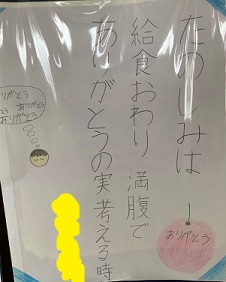 たのしみは
給食おわり 満腹で
ありがとうの実考える時
ありがとう
りがとう
ありがとう
ありがとう